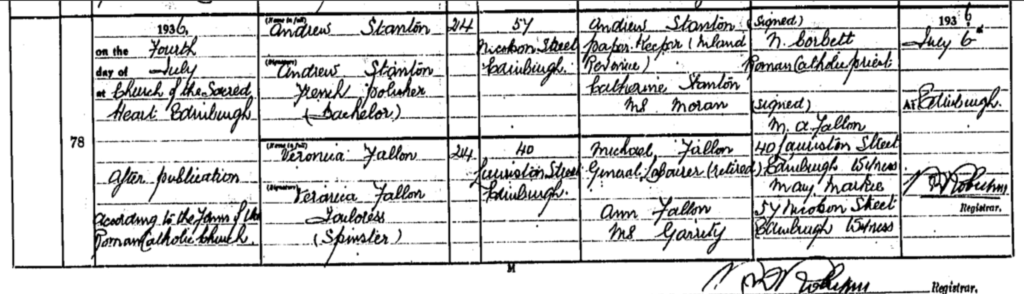 78
1936,
on the Fourth
day of July
at Church of the Sacred
Heart Edinburgh
After publication
According to the Forms of the
Roman Catholic Church.
(Name in full)
Andrew Stanton
(Signature)
Andrew Stanton
French polisher
(Bachelor)
(Name in full)
Veronica Fallon
(Signature)
Veronica Fallon
Tailoress
(Spinster)
24
24
57
Nicolson Street
Edinburgh.
40
Lauriston Street
Edinburgh.
Andrew Stanton
paper-Keeper (Inland
Revenue)
Catherine Stanton
MS Moran
Michael Fallon
General Labourer (retired)
Ann Fallon
MS Garrity
(signed)
N. Corbett
Roman Catholic priest
(signed)
M. A Fallon
40 Lauriston Street
Edinburgh Witness
May
57 Nicolson Street
Edinburgh Witness
1936
July 6th
At Edinburgh.
Registrar.
M
Registrar.